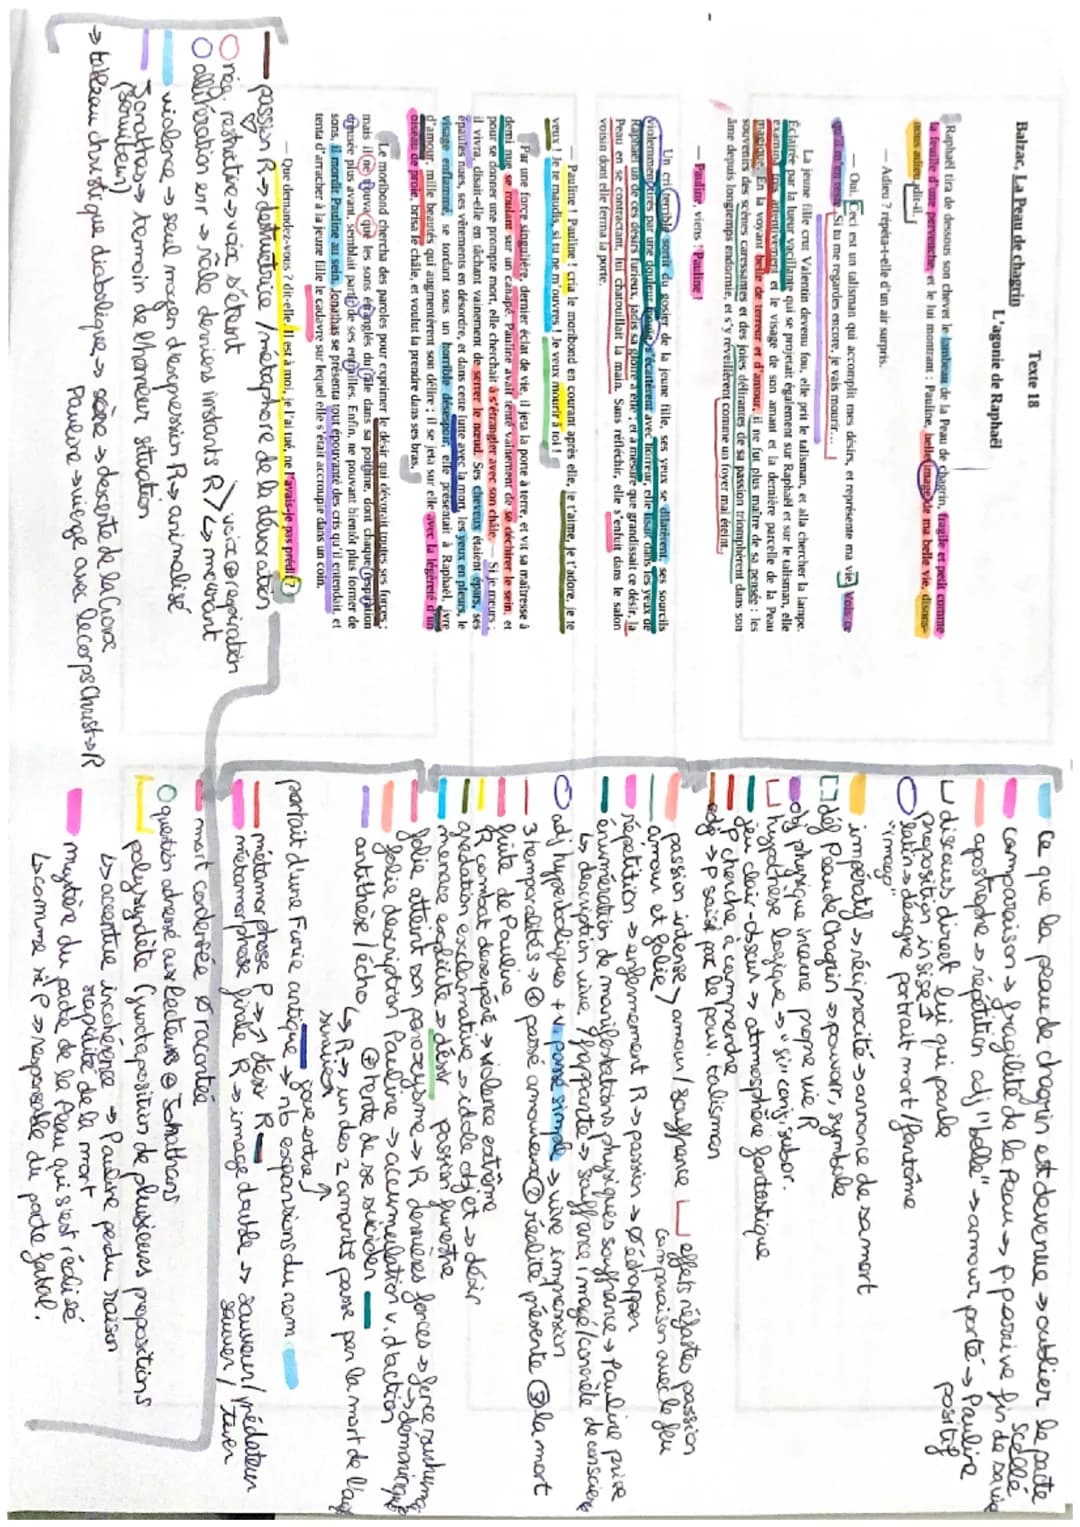 Texte 18
L'agonie de Raphaël
Balzac, La Peau de chagrin
Raphaël tira de dessous son chevet le lambeau de la Peau de chagrin, fragile et petit comme
la feuille d'une pervenche, et le lui montrant : Pauline, belle image de ma belle vie, disons-
nous adieu, dit-il.
— Adieu ? répéta-t-elle d'un air surpris.
— Oui. Ceci est un talisman qui accomplit mes désirs, et représente ma vie. Vois ce
qu'il m'en reste. Si tu me regardes encore, je vais mourir...
La jeune fille crut Valentin devenu fou, elle prit le talisman, et alla chercher la lampe.
Éclairée par la lueur vacillante qui se projetait également sur Raphaël et sur le talisman, elle
examina très attentivement et le visage de son amant et la dernière parcelle de la Peau
magique. En la voyant belle de terreur et d'amour, il ne fut plus maître de sa pensée : les
souvenirs des scènes caressantes et des joies délirantes de sa passion triomphèrent dans son
âme depuis longtemps endormie, et s'y réveillèrent comme un foyer mal éteint.
— Pauline, viens ! Pauline !
Un cri terrible sortit du gosier de la jeune fille, ses yeux se dilatèrent, ses sourcils
violemment tirés par une douleur inouïe, s'écartèrent avec horreur, elle lisait dans les yeux de
Raphaël un de ces désirs furieux, jadis sa gloire à elle ; et à mesure que grandissait ce désir, la
Peau en se contractant, lui chatouillait la main. Sans réfléchir, elle s'enfuit dans le salon
voisin dont elle ferma la porte.
— Pauline ! Pauline ! cria le moribond en courant après elle, je t'aime, je t'adore, je te
veux ! Je te maudis, si tu ne m'ouvres ! Je veux mourir à toi !
Par une force singulière, dernier éclat de vie, il jeta la porte à terre, et vit sa maîtresse à
demi nue se roulant sur un canapé. Pauline avait tenté vainement de se déchirer le sein, et
pour se donner une prompte mort, elle cherchait à s'étrangler avec son châle. — Si je meurs,
il vivra, disait-elle en tâchant vainement de serrer le nœud. Ses cheveux étaient épars, ses
épaules nues, ses vêtements en désordre, et dans cette lutte avec la mort, les yeux en pleurs, le
visage enflammé, se tordant sous un horrible désespoir, elle présentait à Raphaël, ivre
d'amour, mille beautés qui augmentèrent son délire ; il se jeta sur elle avec la légèreté d'un
oiseau de proie, brisa le châle, et voulut la prendre dans ses bras.
Le moribond chercha des paroles pour exprimer le désir qui dévorait toutes ses forces ;
mais il ne trouva que les sons étranglés du râle dans sa poitrine, dont chaque respiration
creusée plus avant, semblait partir de ses entrailles. Enfin, ne pouvant bientôt plus former de
sons, il mordit Pauline au sein. Jonathas se présenta tout épouvanté des cris qu'il entendait, et
tenta d'arracher à la jeune fille le cadavre sur lequel elle s'était accroupie dans un coin.
— Que demandez-vous ? dit-elle. Il est à moi, je l'ai tué, ne l'avais-je pas prédit ?
passion R → destructrice / métaphore de la dévoration
nég. restrictive → voix s'éteint
allitération en r → râle derniers instants R
voix ⊕ respiration
↳ mourant
violence → seul moyen d'expression R → animalisé
Jonathas → témoin de l'horreur situation
(serviteur)
→ tableau christique diabolique → scène → descente de la Croix
Pauline → vierge avec le corps Christ → R
ce que la peau de chagrin est devenue → oublier le pacte
scellé
comparaison → fragilité de la Peau → P arrive fin de sa vie
apostrophe → répétition adj "belle" → amour porté → Pauline
positif
discours direct lui qui parle
proposition incise
latin → désigne portrait mort / fantôme
"imago"
impératif → réciprocité → annonce de sa mort
déf Peau de Chagrin → pouvoir, symbole
obj physique incarne propre vie R
hypothèse logique → "si" conj. subor.
jeu clair-obscur → atmosphère fantastique
P cherche à comprendre
→ P saisi par le pouv. talisman
passion intense
amour et folie
amour / souffrance
effets néfastes passion
comparaison avec le feu
répétition → enfermement R → passion → ∅ échapper
énumération de manifestations physiques souffrance → Pauline prise
↳ description vive / frappante → souffrance imagé / concrète de conscience
adj hyperboliques + v. passé simple → vive impression
3 temporalités → ① passé amoureux ② réalité présente ③ la mort
fuite de Pauline
R combat désespéré → violence extrême
gradation exclamative → idole objet → désir
menace explicite → désir passion funestre
folie atteint son paroxysme → R dernières forces → force
→ démoniaque
folie description Pauline → accumulation v. d'action
antithèse / écho ⊕ tente de se suicider
↳ R → un des 2 amants passe par la mort de l'autre
survivre
joue entre
portait d'une Furie antique → nb expansions du nom
métamorphose P → ↗ désir R
métamorphose finale R → image double → sauveur / prédateur
sauver / tuer
mort cadavérée ∅ racontée
question adressé aux lecteurs ⊕ Jonathans
polysyndète (juxtaposition de plusieurs propositions
↳ accentue incohérence → Pauline perdu raison
rapidité de la mort
mystère du pacte de la Peau qui s'est réalisé
↳ comme si P → responsable du pacte fatal.